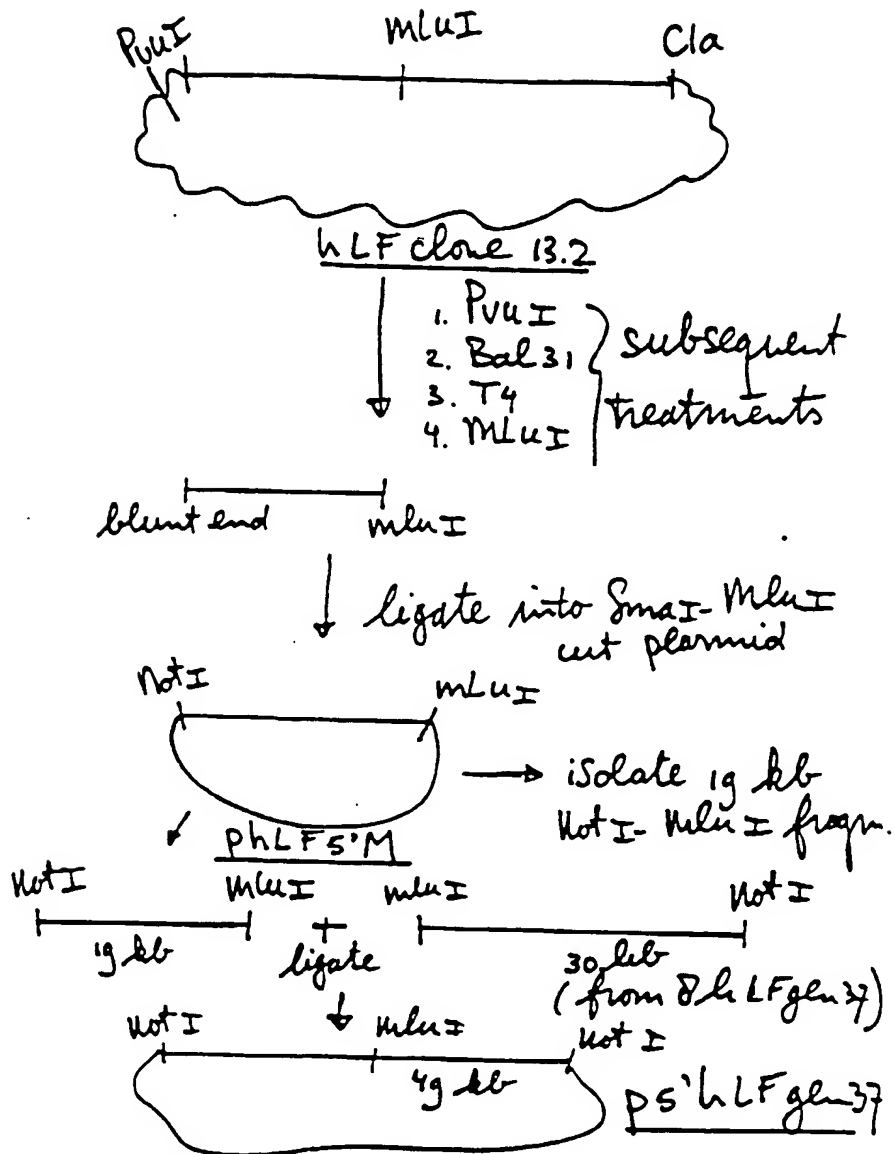 PvuI MluI Cla
hLF clone 13.2
1. PvuI
2. Bal31
3. T4
4. MluI
subsequent
treatments
blunt end mluI
ligate into SmaI-MluI
cut plasmid
NotI MluI
isolate 19 kb
NotI-MluI fragm.
phLF5'M
NotI MluI mluI NotI
19 kb + 30 kb
ligate (from 8hLFgen37)
NotI mluI NotI
49 kb
p5'hLFgen37